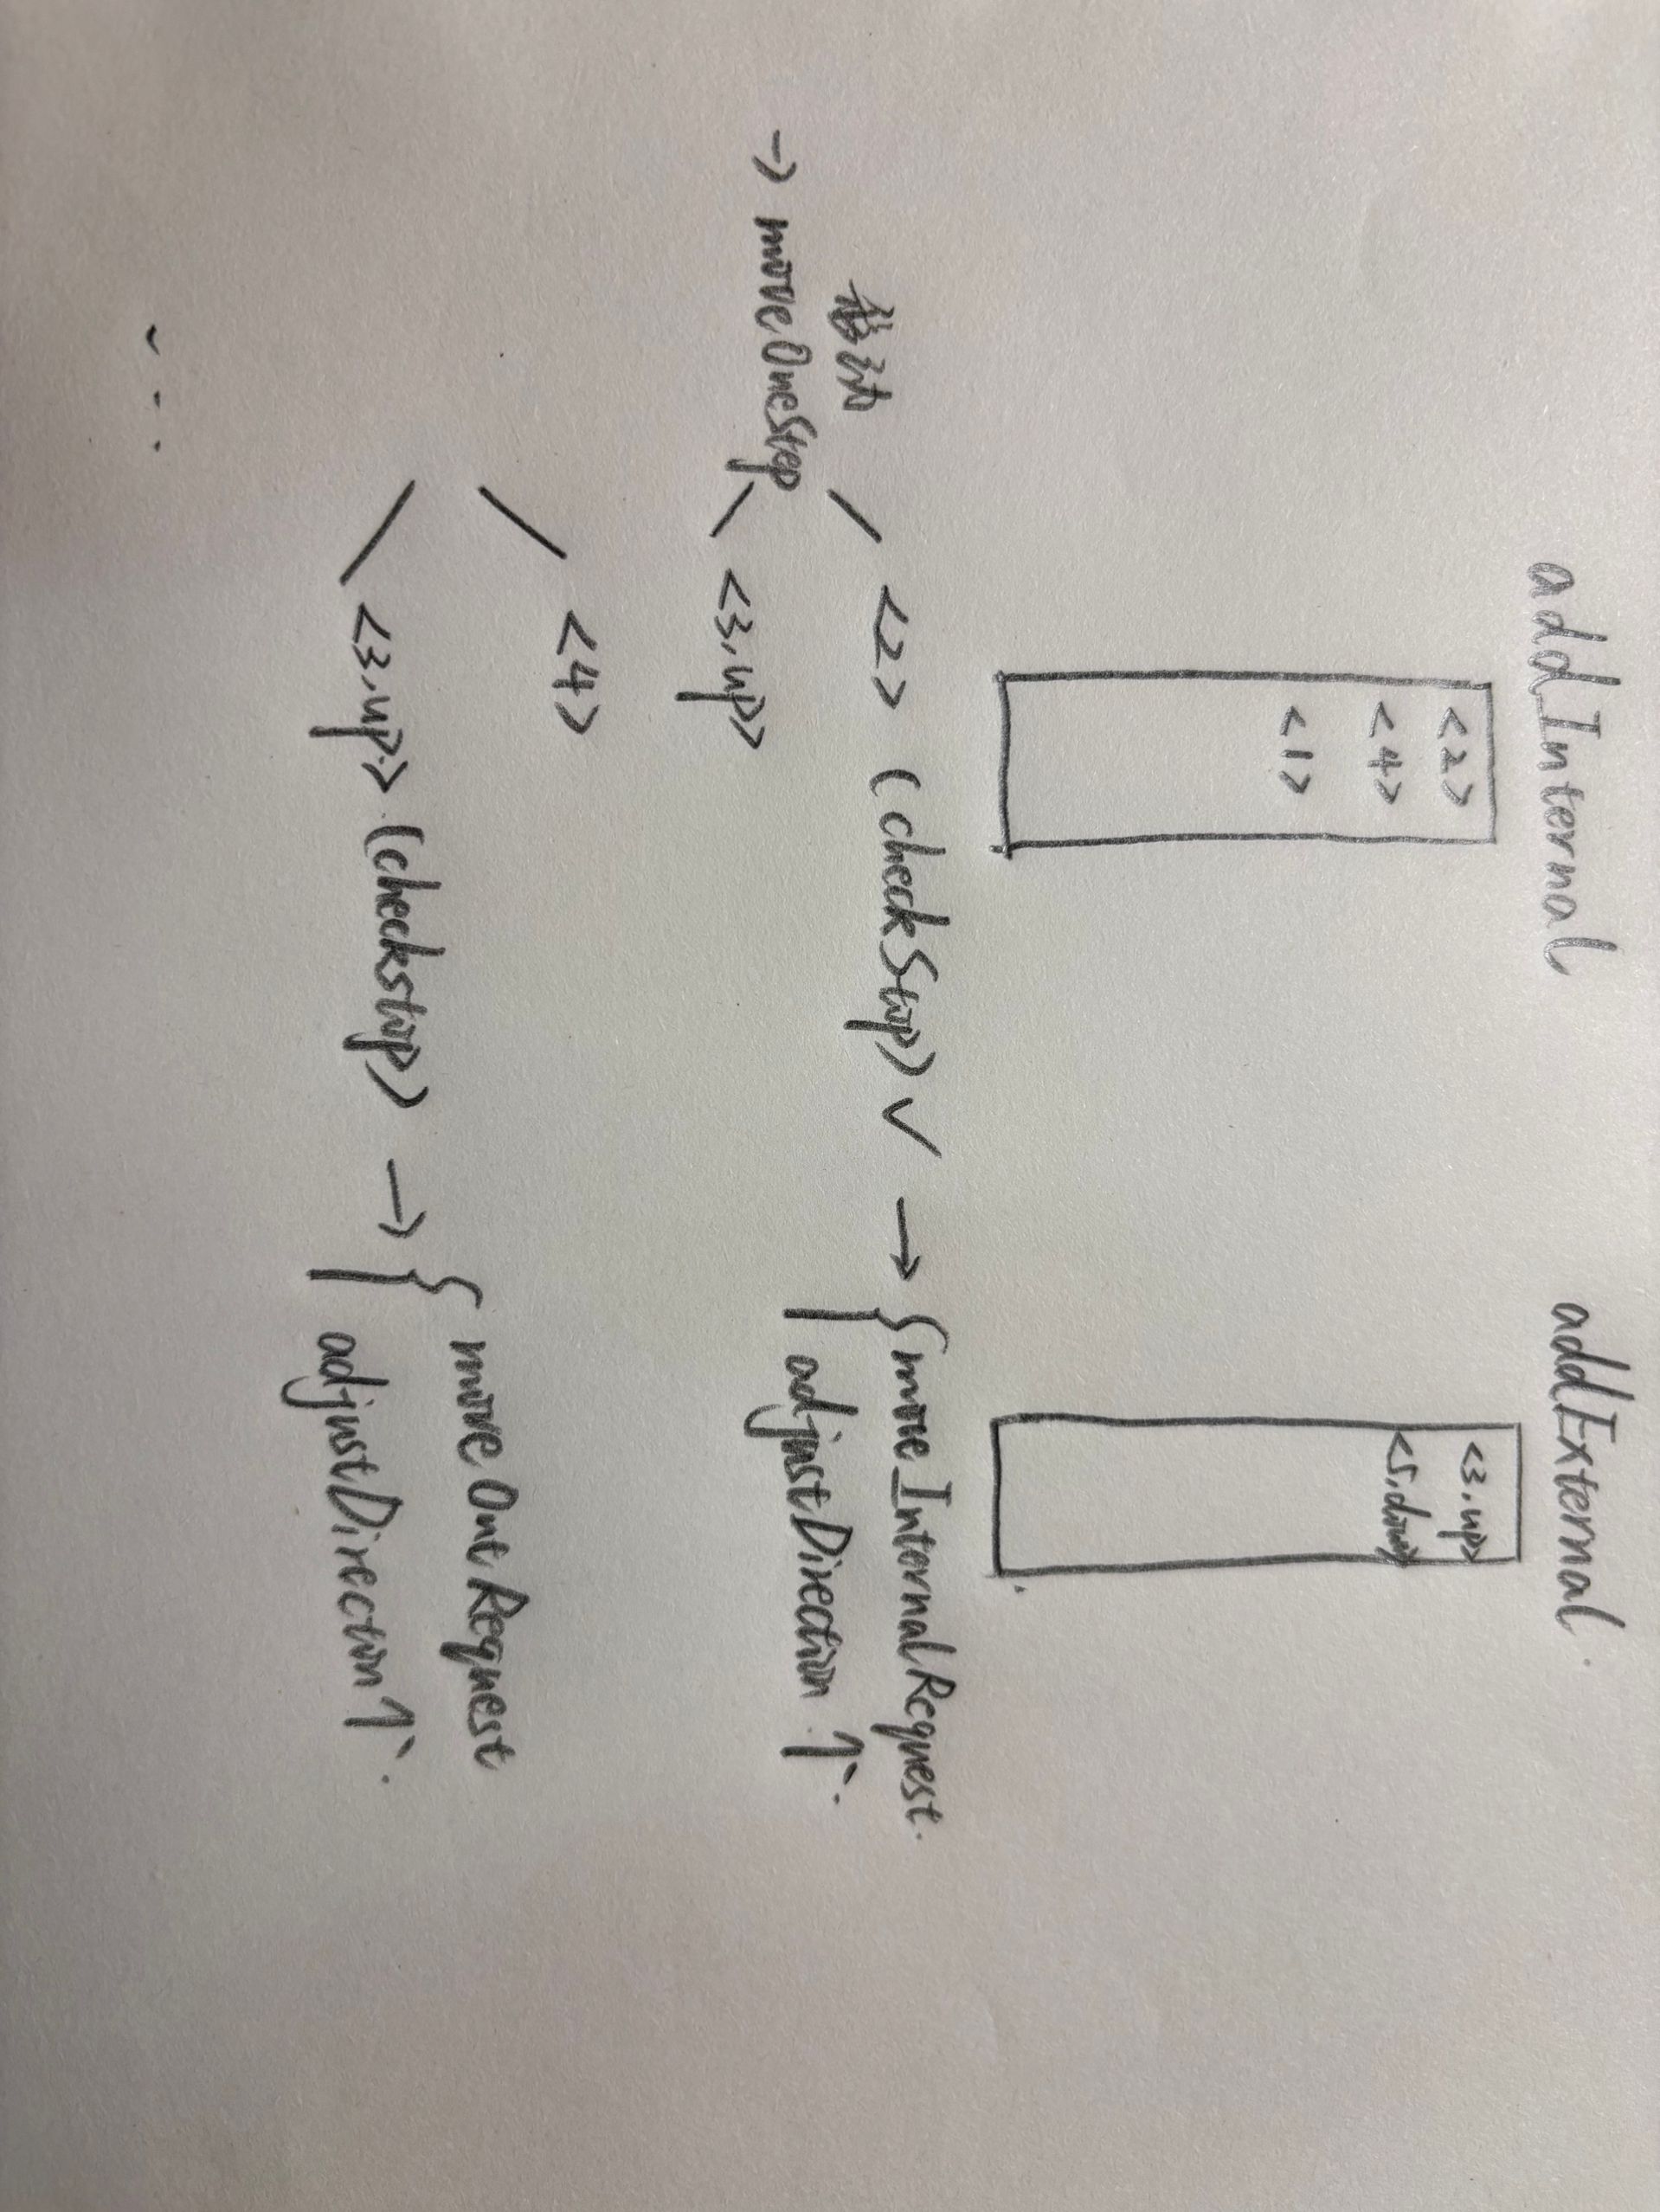 addInternal
addExternal.
<2>
<4>
<1>
<3.up>
<5.down>
移动
→ moveOneStep
<2> (checkStop) ✓ → { moveInternalRequest.
adjustDirection ↑.
<3.up>
<4>
<3.up> (checkstop) → { moveOutRequest
adjustDirection ↑.
...